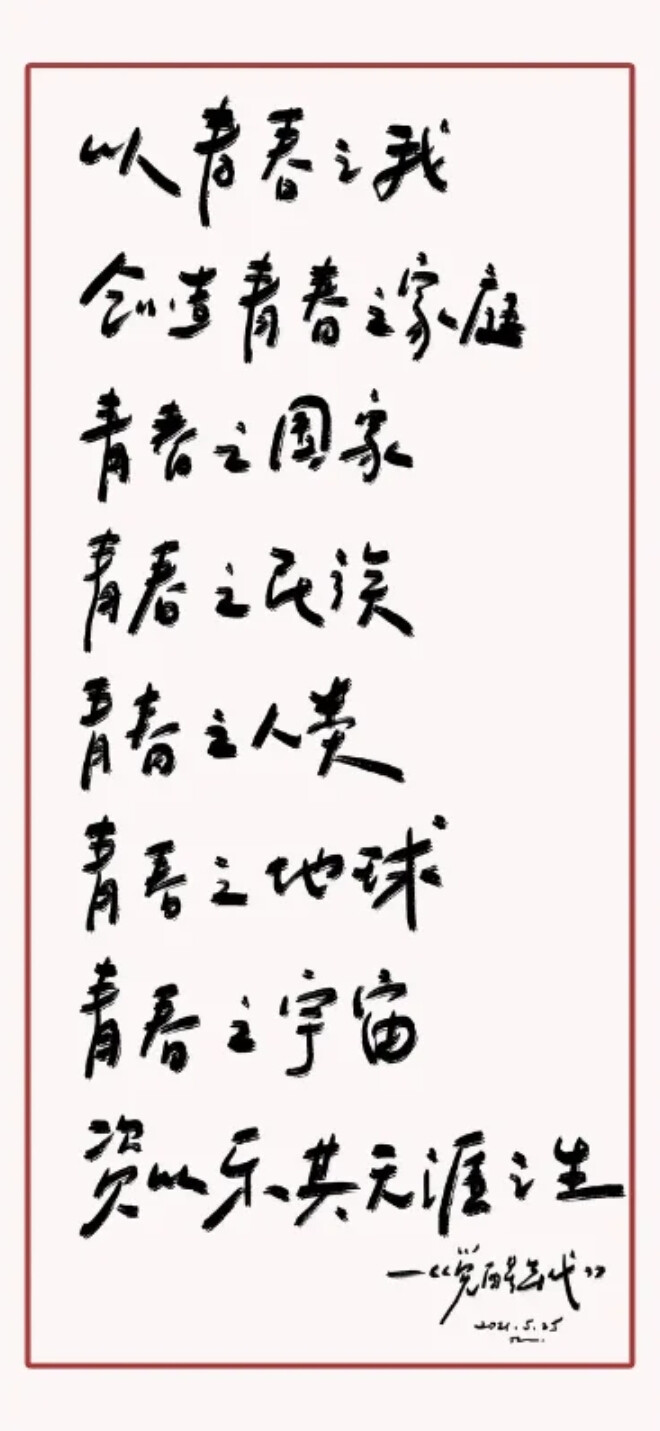 以青春之我
创造青春之家庭
青春之国家
青春之民族
青春之人类
青春之地球
青春之宇宙
资以乐其无涯之生
—《觉醒年代》
2021.5.25